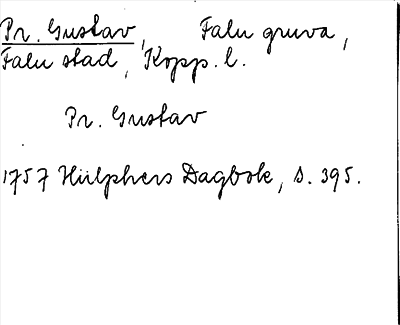 Pr. Gustav, Falu gruva,
Falu stad, Kopp. l.
Pr. Gustav
1757 Hülphers Dagbok, s. 395.